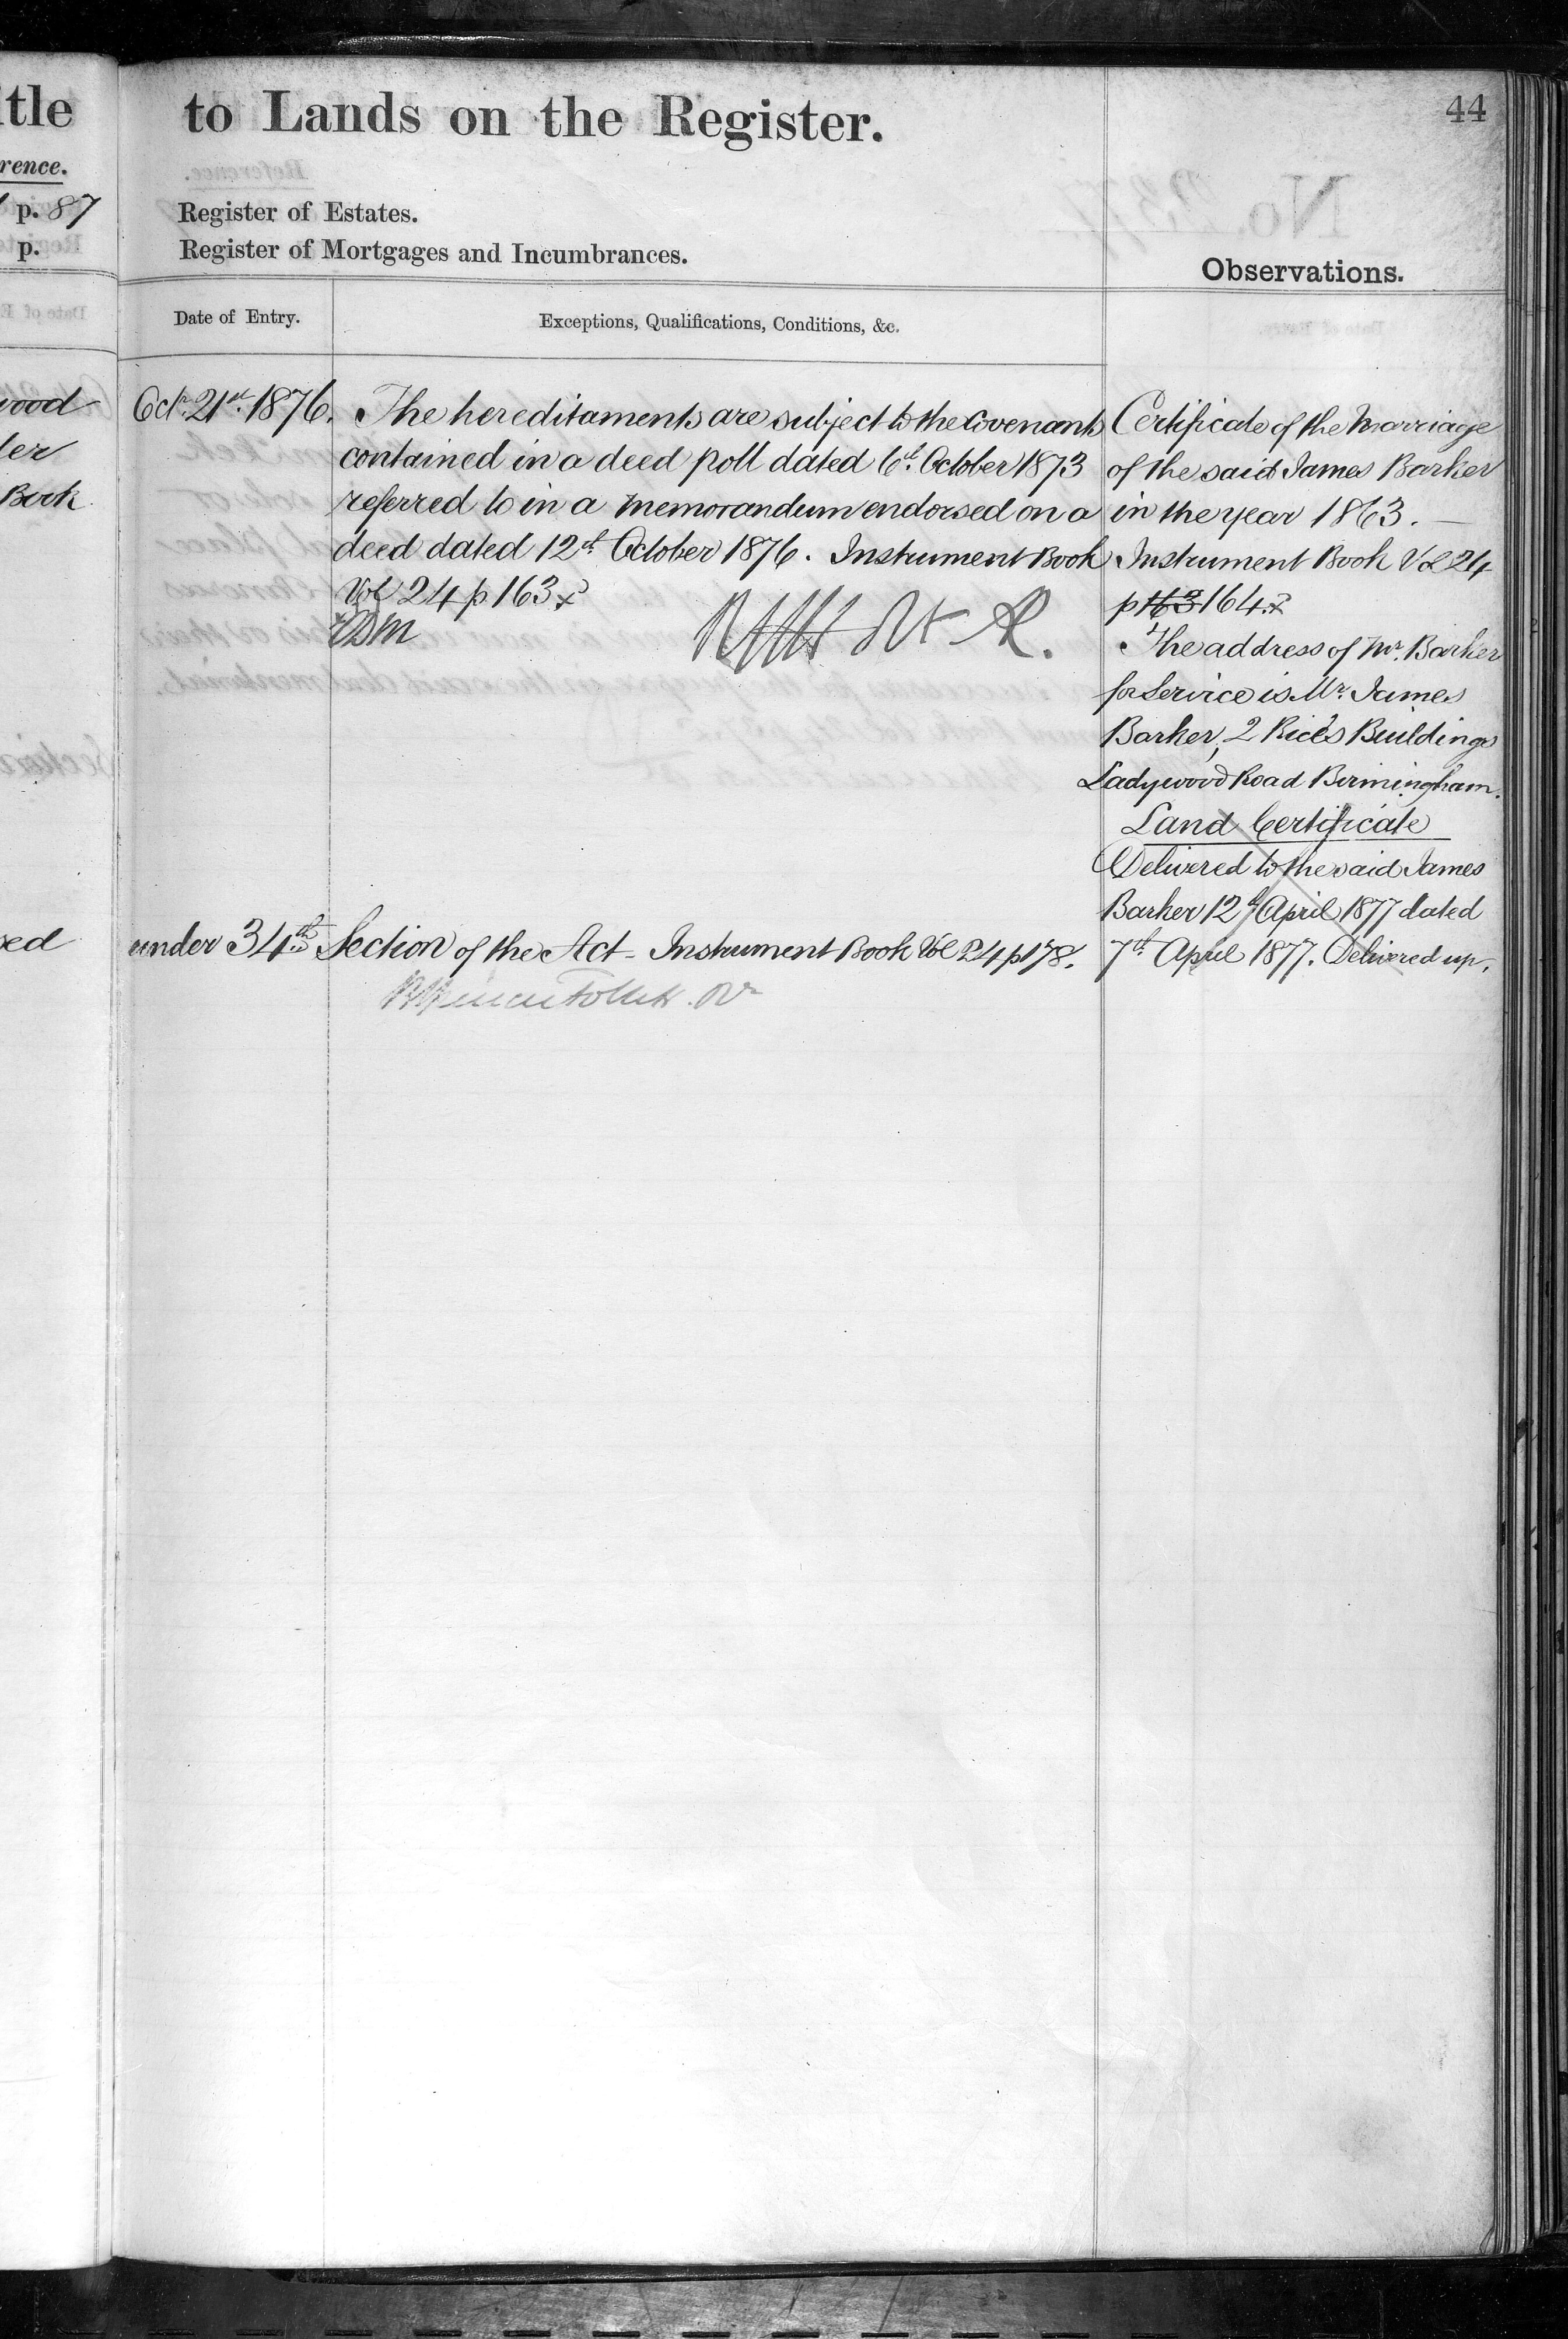 tle
rence.
p. 87
p.
wood
ler
Book
sed
to Lands on the Register.
44
Register of Estates.
Register of Mortgages and Incumbrances.
Observations.
Date of Entry.
Exceptions, Qualifications, Conditions, &c.
Octr. 21st. 1876.
The hereditaments are subject to the covenants
contained in a deed poll dated 6th. October 1873
referred to in a memorandum endorsed on a
deed dated 12th. October 1876. Instrument Book
Vol 24 p 163
under 34th. Section of the Act - Instrument Book Vol 24 p 178.
Certificate of the Marriage
of the said James Barker
in the year 1863. —
Instrument Book Vol 24
p 163 164
The address of Mr. Barker
for Service is Mr. James
Barker, 2 Rice's Buildings
Ladywood Road Birmingham.
Land Certificate
Delivered to the said James
Barker 12th April 1877 dated
7th. April 1877. Delivered up.